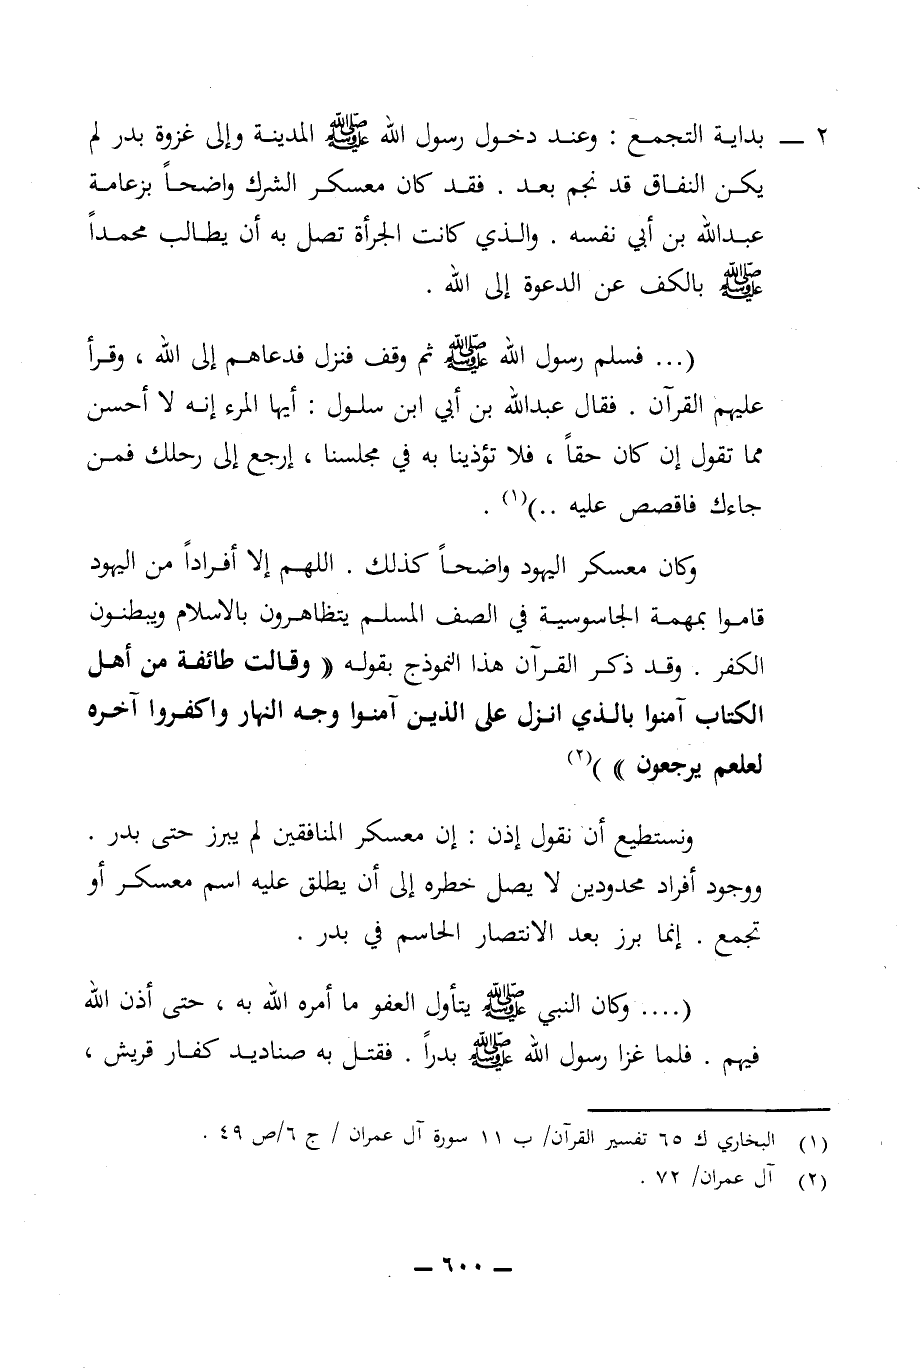 ٢ ــ بداية التجمع : وعند دخول رسول الله ﷺ المدينة وإلى غزوة بدر لم
يكن النفاق قد نجم بعد . فقد كان معسكر الشرك واضحاً بزعامة
عبدالله بن أبي نفسه . والذي كانت الجرأة تصل به أن يطالب محمداً
ﷺ بالكف عن الدعوة إلى الله .
(... فسلم رسول الله ﷺ ثم وقف فنزل فدعاهم إلى الله ، وقرأ
عليهم القرآن . فقال عبدالله بن أبي ابن سلول : أيها المرء إنه لا أحسن
مما تقول إن كان حقاً ، فلا تؤذينا به في مجلسنا ، إرجع إلى رحلك فمن
جاءك فاقصص عليه ..)(١) .
وكان معسكر اليهود واضحاً كذلك . اللهم إلا أفراداً من اليهود
قاموا بمهمة الجاسوسية في الصف المسلم يتظاهرون بالاسلام ويبطنون
الكفر . وقد ذكر القرآن هذا النموذج بقوله ﴿ وقالت طائفة من أهل
الكتاب آمنوا بالذي انزل على الذين آمنوا وجه النهار واكفروا آخره
لعلعم يرجعون ﴾ )(٢)
ونستطيع أن نقول إذن : إن معسكر المنافقين لم يبرز حتى بدر .
ووجود أفراد محدودين لا يصل خطره إلى أن يطلق عليه اسم معسكر أو
تجمع . إنما برز بعد الانتصار الحاسم في بدر .
(.... وكان النبي ﷺ يتأول العفو ما أمره الله به ، حتى أذن الله
فيهم . فلما غزا رسول الله ﷺ بدراً . فقتل به صناديد كفار قريش ،
(١) البخاري ك ٦٥ تفسير القرآن/ ب ١١ سورة آل عمران / ج ٦/ص ٤٩ .
(٢) آل عمران/ ٧٢ .
ــ ٦٠٠ ــ